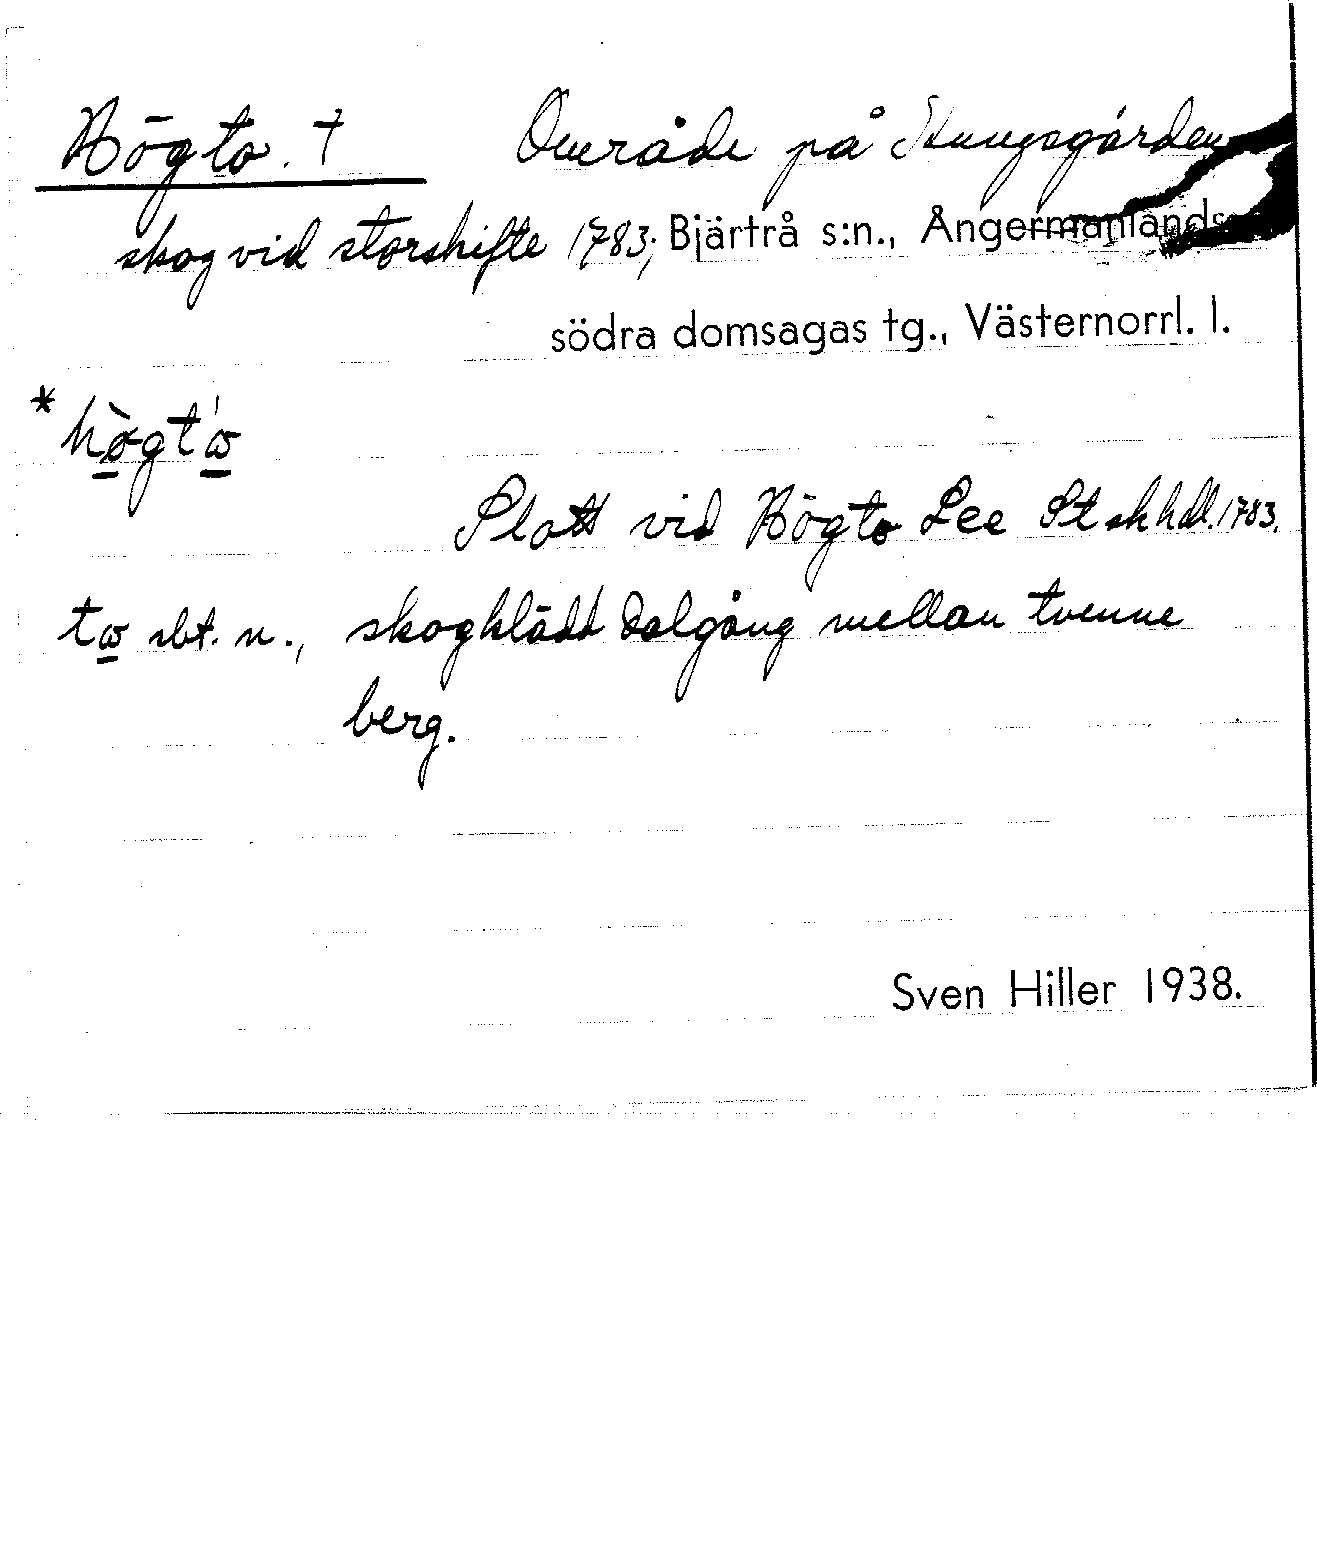 Högto. † Område på Kungsgården
skog vid storshifte 1783; Bjärtrå s:n., Ångermanlands
södra domsagas tg., Västernorrl. l.
*hògtω
Slott vid Högto Lee St skhdl. 1783.
tω sbt. n., skogklädd dalgång mellan tvenne
berg.
Sven Hiller 1938.